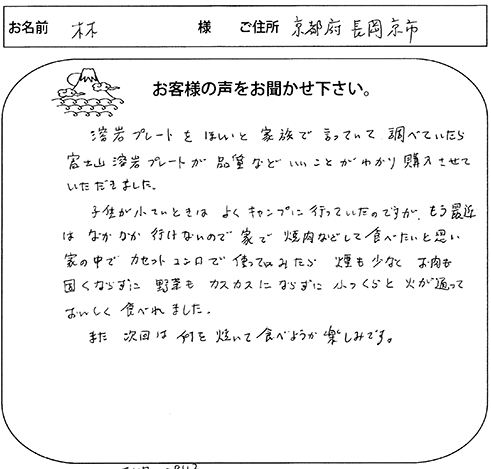 お名前 林 様 ご住所 京都府長岡京市
お客様の声をお聞かせ下さい。
溶岩プレートをほしいと家族で言っていて調べていたら
富士山溶岩プレートが品質などいいことがわかり購入させて
いただきました。
子供が小さいときはよくキャンプに行っていたのですが、もう最近
はなかなか行けないので家で焼肉などして食べたいと思い
家の中でカセットコンロで使ってみたら煙も少なくお肉も
固くならずに野菜もカスカスにならずにふっくらと火が通って
おいしく食べれました。
また次回は何を焼いて食べようか楽しみです。